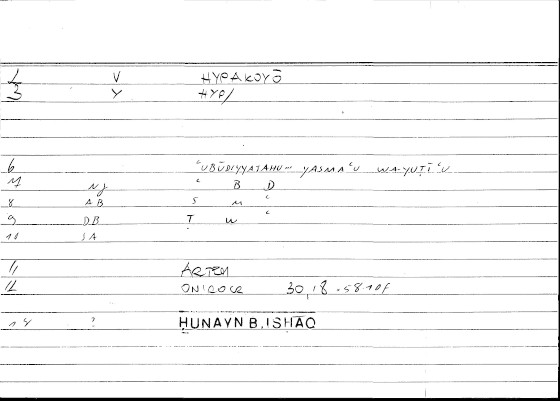 1 V HYPAKOYŌ
3 Y HYP/
6 ʿUBŪDIYYATAHU... YASMAʿU WA-YUṬĪʿU
M NJ ʿ B D
8 AB S M ʿ
9 DB Ṭ W ʿ
10 SA
11 ARTEM
12 ONIROCR 30,18.5810f
14 ? ḤUNAYN B. ISḤĀQ